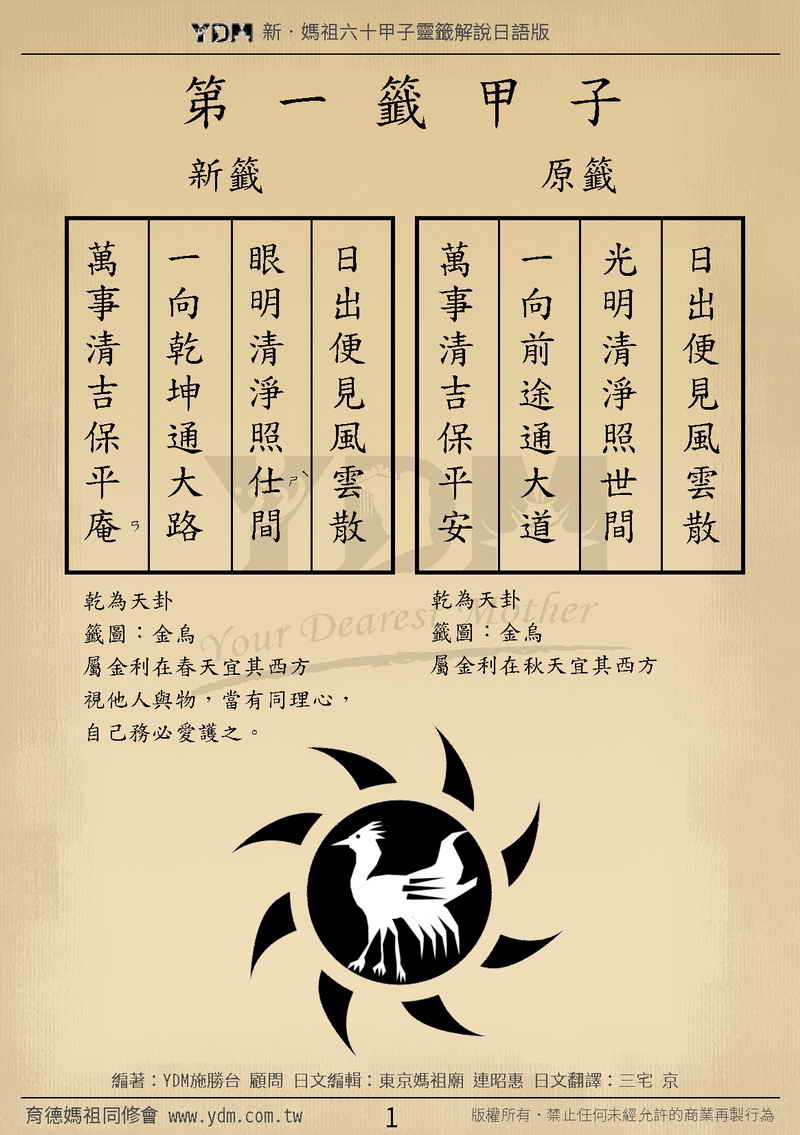 YDM 新．媽祖六十甲子靈籤解說日語版
第一籤甲子
原籤
日出便見風雲散
光明清淨照世間
一向前途通大道
萬事清吉保平安
乾為天卦
籤圖：金烏
屬金利在秋天宜其西方
新籤
日出便見風雲散
眼明清淨照仕ㄕˋ間
一向乾坤通大路
萬事清吉保平庵ㄢ
乾為天卦
籤圖：金烏
屬金利在春天宜其西方
視他人與物，當有同理心，
自己務必愛護之。
YDM
Your Dearest Mother
編著：YDM施勝台 顧問 日文編輯：東京媽祖廟 連昭惠 日文翻譯：三宅 京
育德媽祖同修會 www.ydm.com.tw
1
版權所有．禁止任何未經允許的商業再製行為